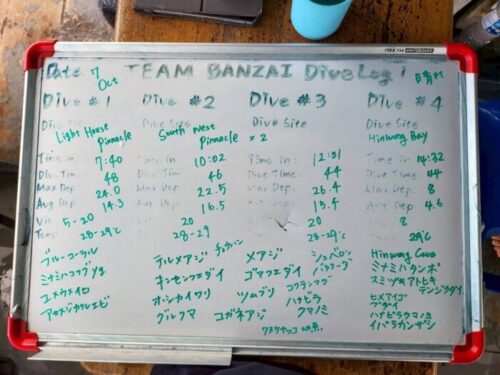 Date 7 Oct TEAM BANZAI Dive Log! 晴れ
Dive #1 Dive #2 Dive #3 Dive #4
Dive Site Dive Site Dive Site Dive Site
Light House Pinnacle South West Pinnacle × 2 Hinwang Bay
Time in 7:40 Time in 10:02 Time in: 12:31 Time in 14:32
Dive Time: 48 Dive Time: 46 Dive Time: 44 Dive Time: 44
Max Dep. 24.0 Max Dep. 22.5 Max Dep: 26.4 Max Dep. 8
Avg Dep. 14.3 Avg Dep. 16.5 Avg Dep: 13.4 Avg Dep. 4.6
Vis 5-20 20 20 8
Temp 28-29℃ 28-29 28-29℃ 29℃
ブルーコーラル デルメアジ メアジ Hinwang Cave
ミナミハコフグ キンセンフエダイ ゴマフエダイ ミナミハタンポ
ユメウメイロ オニカイワリ ツムブリ コクテンフグ スミツキアトヒキテンジクダイ
グルクマ コガネアジ ハナビラクマノミ ヒメアイゴ
ブダイ
ハナビラクマノミ
イバラカンザシ